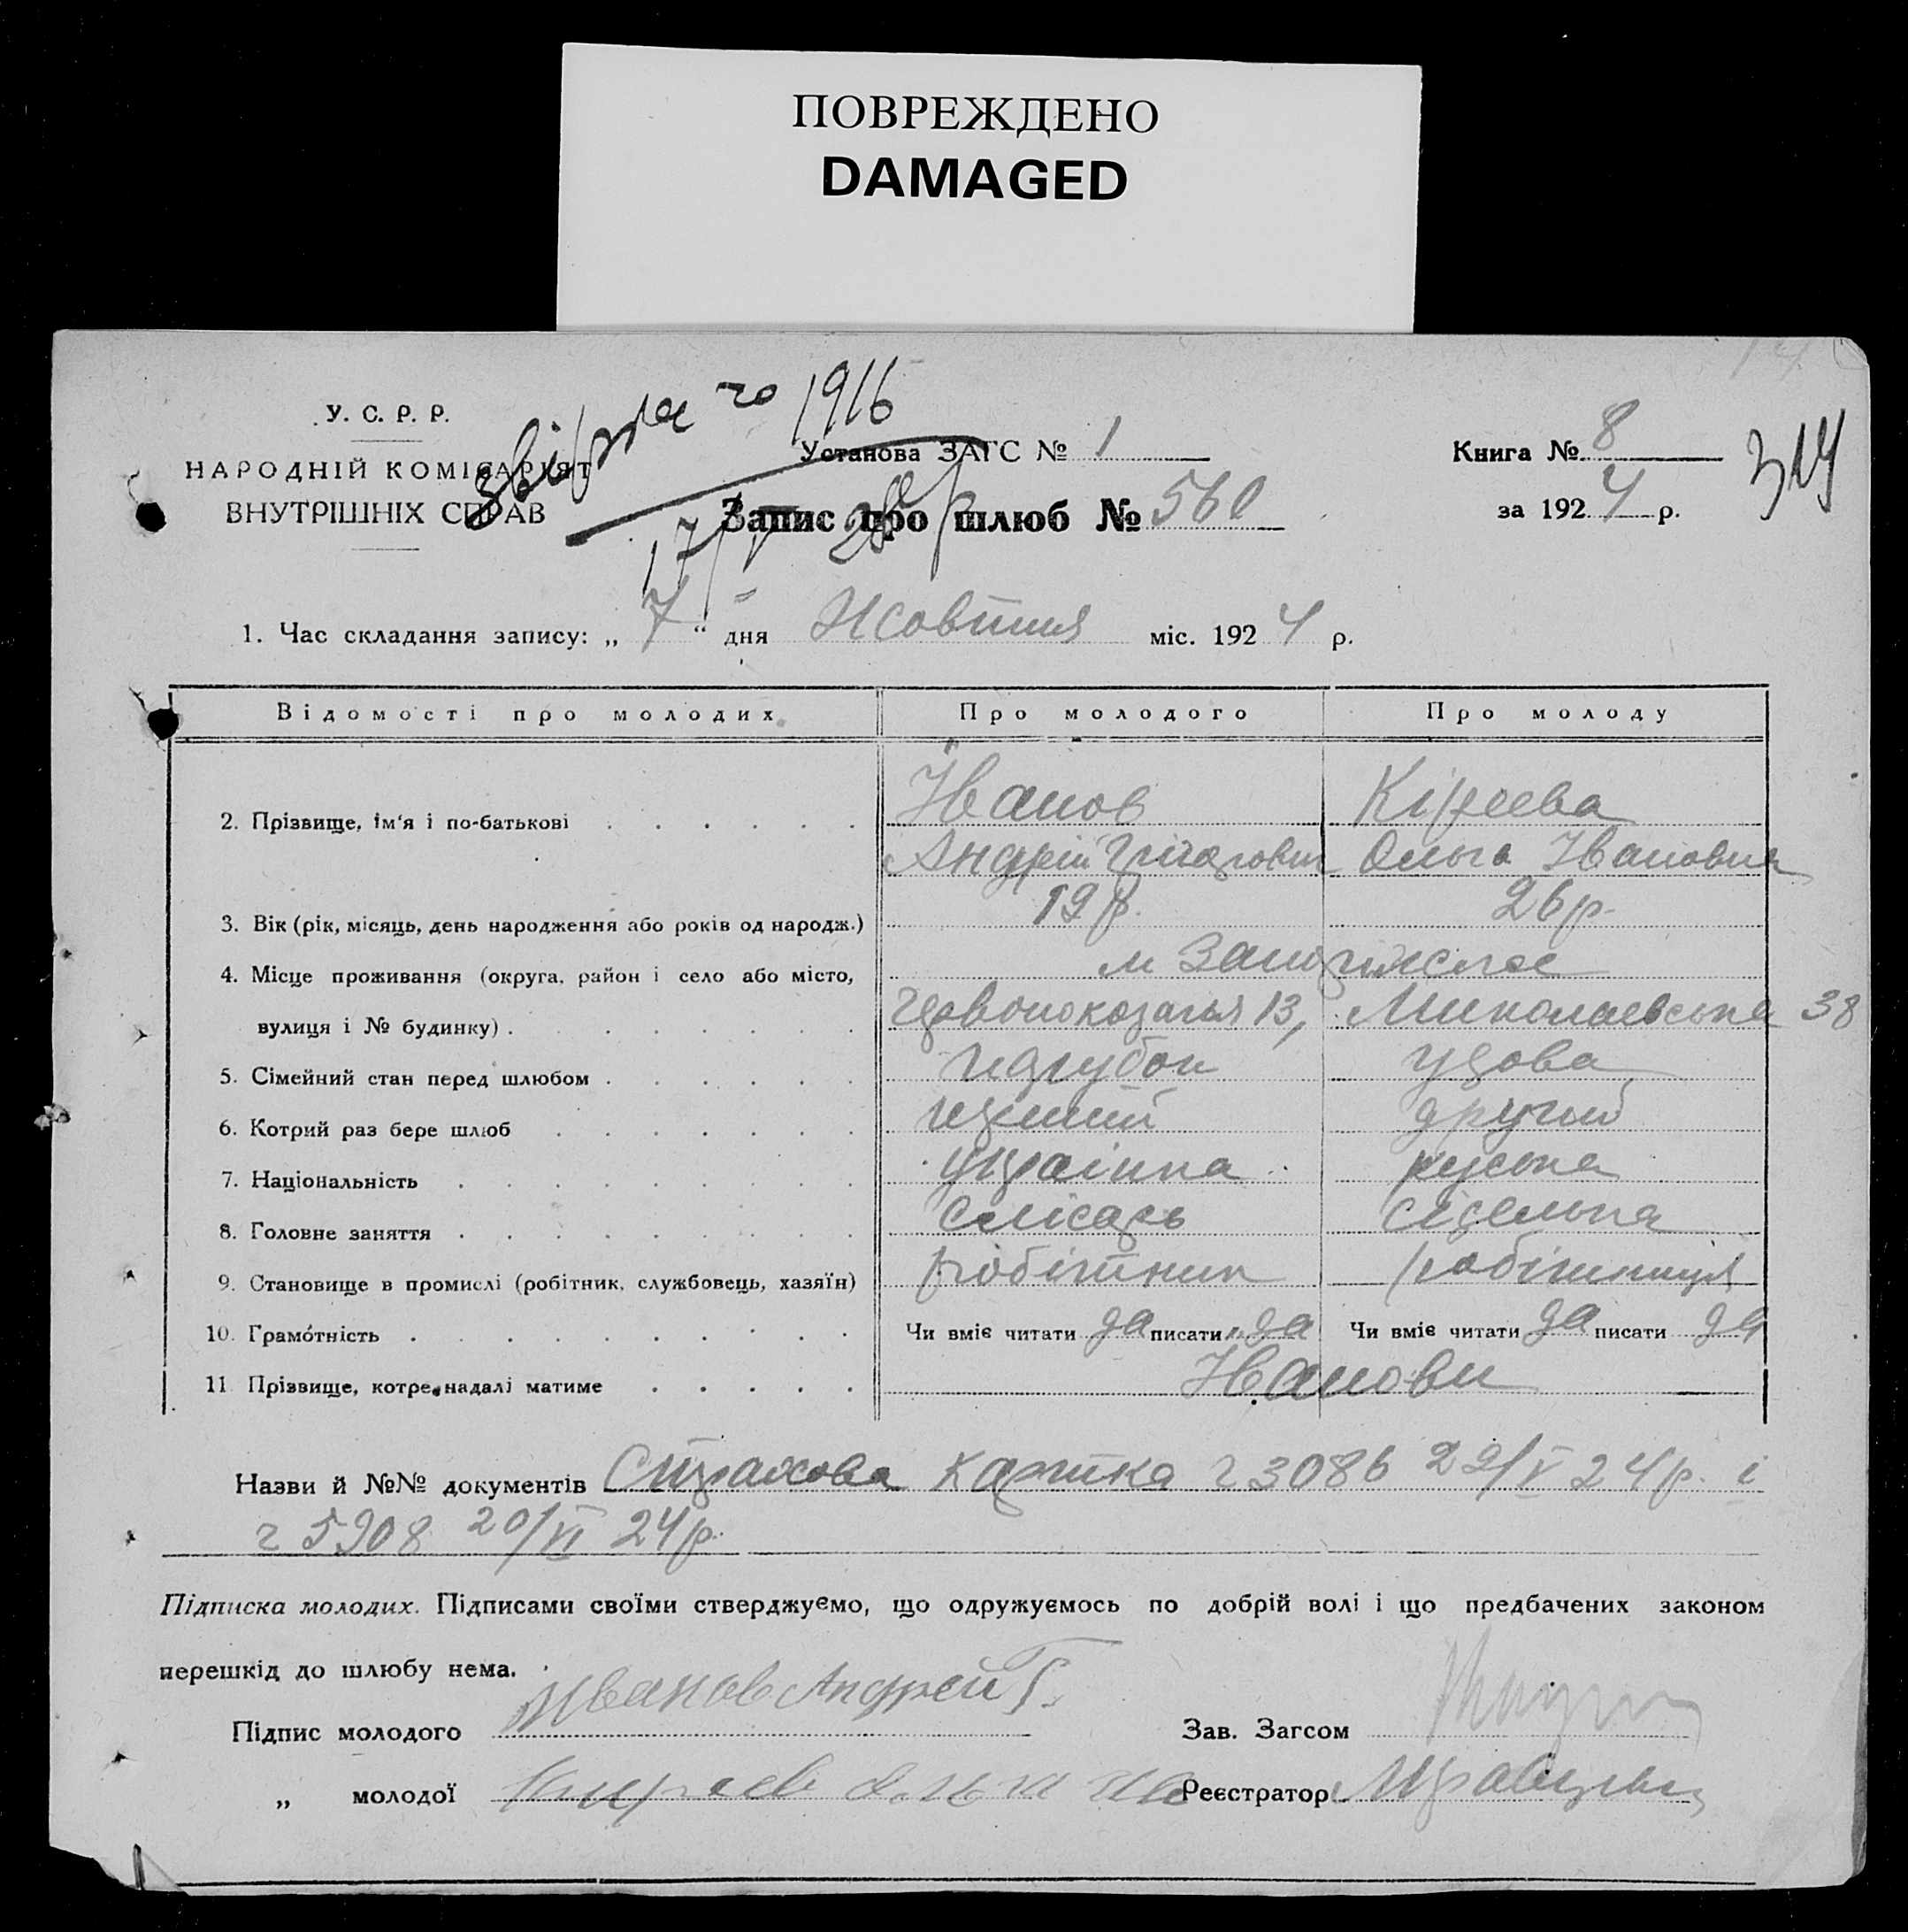 ПОВРЕЖДЕНО
DAMAGED
У. С. Р. Р.
НАРОДНІЙ КОМІСАРІЯТ
ВНУТРІШНІХ СПРАВ
1916
Установа ЗАГС № 1
Запис про шлюб № 560
Книга № 8
за 1924 р.
314
1. Час складання запису: „ 7 “ дня Жовтня міс. 1924 р.
Відомості про молодих Про молодого Про молоду
2. Прізвище, ім'я і по-батькові Іванов Кіреева
Андрій Григорович Ольга Івановна
3. Вік (рік, місяць, день народження або років од народж.) 19 р. 26 р.
4. Місце проживання (округа, район і село або місто, м Запоріжжє
вулиця і № будинку) 13, Миколаевська 38
5. Сімейний стан перед шлюбом парубок удова
6. Котрий раз бере шлюб перший другий
7. Національність україпка руська
8. Головне заняття слісарь сіделька
9. Становище в промислі (робітник, службовець, хазяїн) робітник робітниця
10. Грамотність Чи вміє читати да писати да Чи вміє читати да писати да
11 Прізвище, котре надалі матиме Іванови
Назви й №№ документів Страхова картка ч 3086 22/V 24 р. і
ч 5908 20/VI 24 р.
Підписка молодих. Підписами своїми стверджуємо, що одружуємось по добрій волі і що предбачених законом
перешкід до шлюбу нема.
Підпис молодого Иванов Андрей Г.
Зав. Загсом
„ молодої
Реєстратор